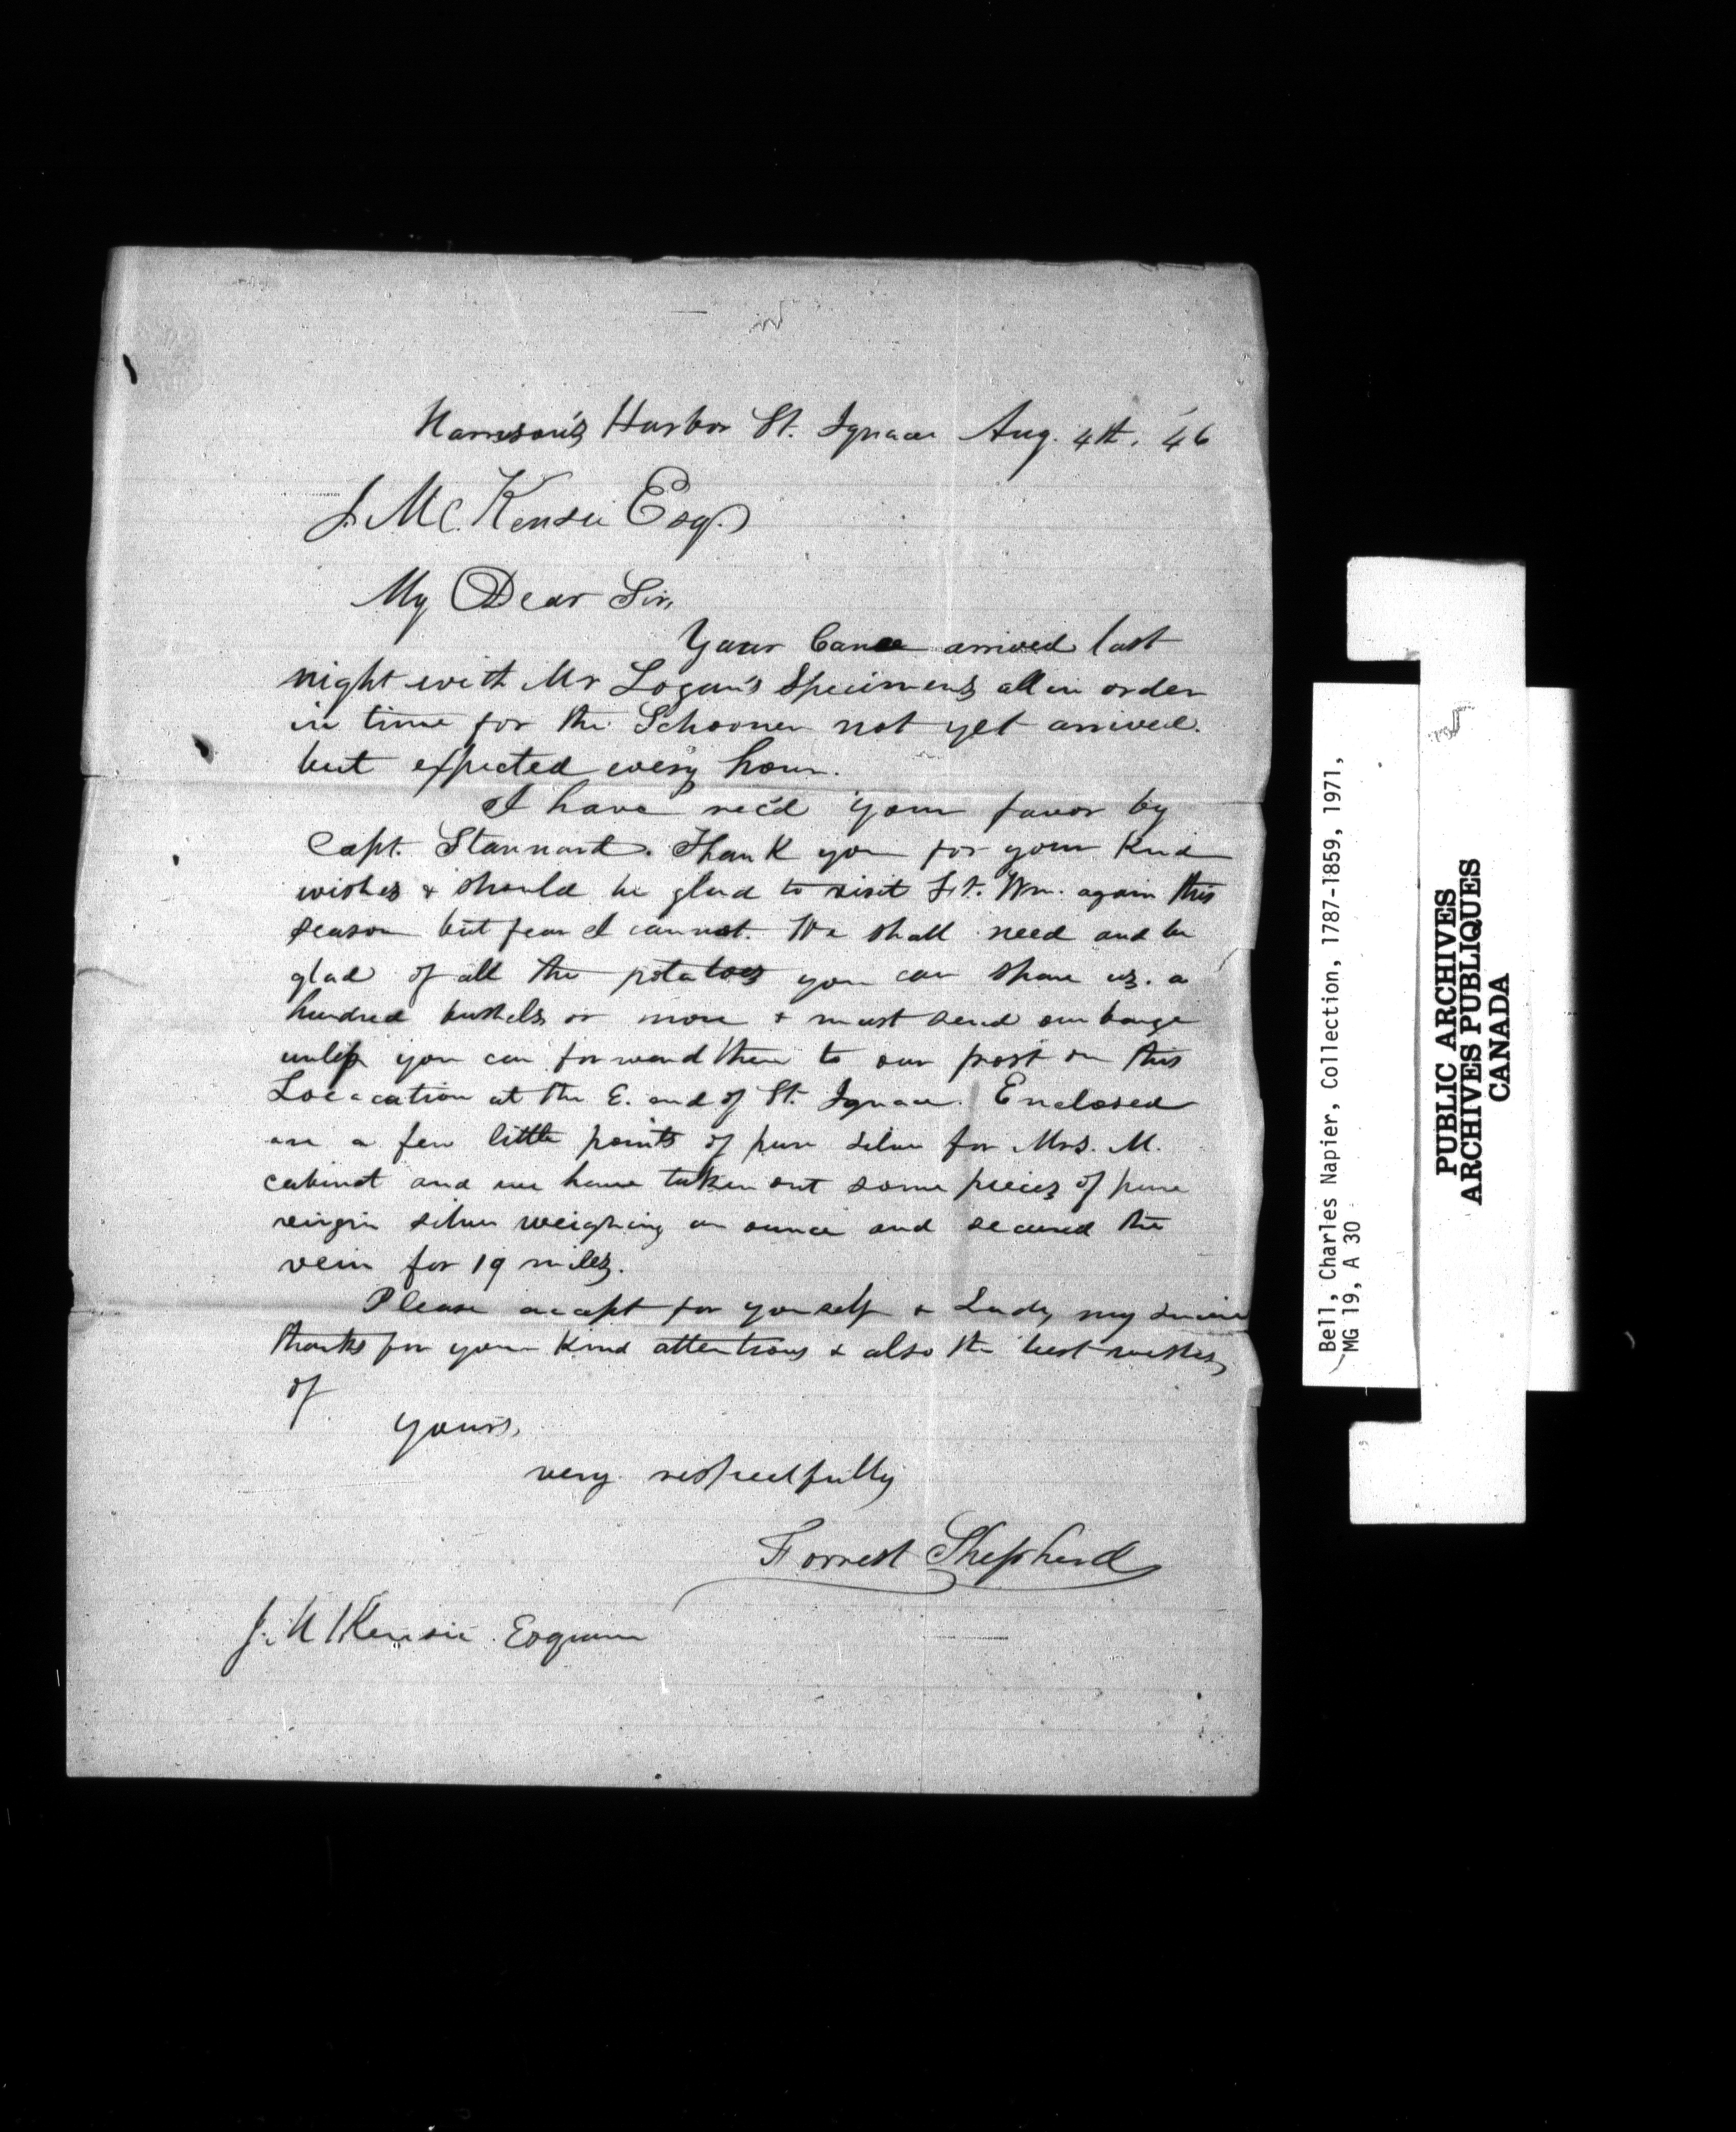 Harrison's Harbor St. Ignace Aug. 4th. '46
J. McKensie Esq.
My Dear Sir,
Your Canoe arrived last
night with Mr Logan's Specimens all in order
in time for the Schooner not yet arrived.
but expected every hour.
I have rec'd your favor by
Capt. Stannard. Thank you for your kind
wishes & should be glad to visit Ft. Wm. again this
season but fear I cannot. We shall need and be
glad of all the potatoes you can spare us. a
hundred bushels or more & must send our barge
unless you can forward them to our post on this
Locacation at the E. end of St. Ignace. Enclosed
are a few little points of pure silver for Mrs. M.
cabinet and we have taken out some pieces of pure
virgin silver weighing an ounce and secured the
vein for 19 miles.
Please accept for yourself & Lady my sincere
thanks for your kind attentions & also the best wishes
of
yours,
very respectfully
Forrest Shepherd
J. McKensie Esquire
Bell, Charles Napier, Collection, 1787-1859, 1971,
MG 19, A 30
PUBLIC ARCHIVES
ARCHIVES PUBLIQUES
CANADA